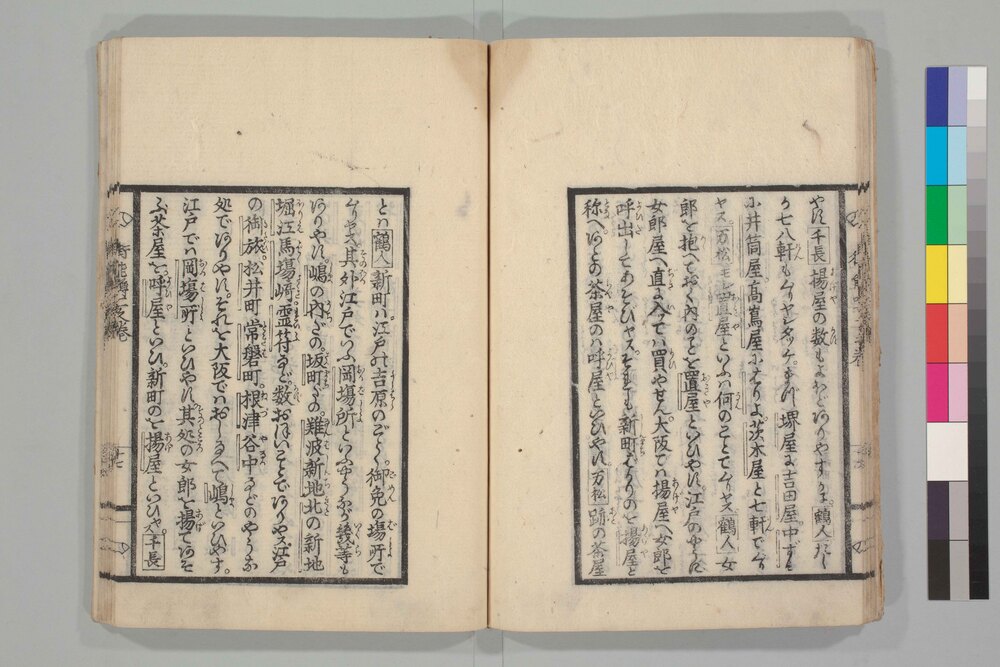 やす 千長 揚屋の数もよわどありやすかヱ 鶴人 たし
か七八軒もムりヤシタツケ。まづ 堺屋に吉田屋中ずみ
に井筒屋高嶌屋にはりよ茨木屋と七軒でムり
ヤス 万松 モシ置屋といふは何のことでムりヤス 鶴人 女
郎を抱へておく内のことを置屋といひやす江戸のやうに
女郎屋へ直に入ては買やせん大阪では揚屋へ女郎を
呼出してあそびヤスそれも新町ばかりのを揚屋と
称へあとの茶屋のは呼屋といひやす 万松 跡の茶屋
とは 鶴人 新町は江戸の吉原のごとく。御免の場所で
ムりヤス其外江戸でいふ岡場所といふやうなが幾等も
ありやす。嶋の内だの坂町だの。難波新地北の新地
堀江馬場崎霊符など。数おほいことでありヤス江戸
の御旅。松井町常磐町。根津谷中などのやうな
処でありやす。それを大阪ではおしなべて嶋といひやす。
江戸では岡場所といひやす。其処の女郎を揚てあそ
ぶ茶屋を。呼屋といひ。新町のを揚屋といひヤ。 千長